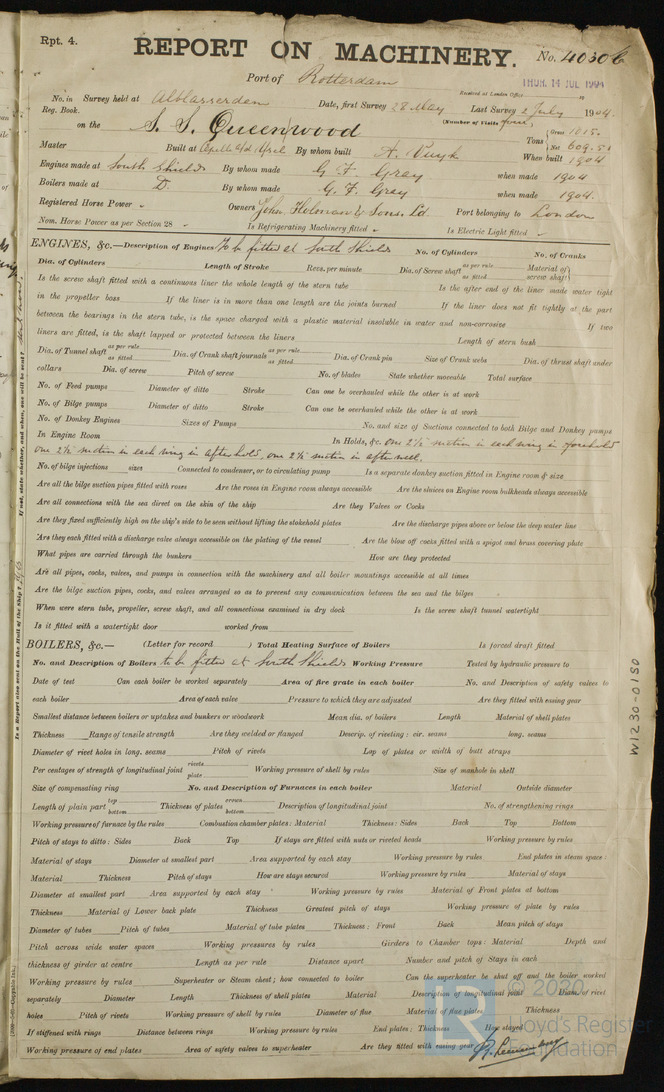 Rpt. 4.
REPORT ON MACHINERY.
No. 40306
Port of Rotterdam
Received at London Office THUR. 14 JUL 1904
No. in Reg. Book. Survey held at Alblasserdam Date, first Survey 28 May Last Survey 2 July 1904.
on the S. S. Queenwood (Number of Visits four)
Tons Gross 1015. Net 609.51
Master Built at By whom built A. Vuyk When built 1904
Engines made at South Shields By whom made G. T. Gray when made 1904
Boilers made at D. By whom made G. T. Gray when made 1904.
Registered Horse Power Owners John Holman & Sons. Ld. Port belonging to London
Nom. Horse Power as per Section 28 Is Refrigerating Machinery fitted Is Electric Light fitted
ENGINES, &c.—Description of Engines To be fitted at South Shields No. of Cylinders No. of Cranks
Dia. of Cylinders Length of Stroke Revs. per minute Dia. of Screw shaft as per rule as fitted Material of screw shaft
Is the screw shaft fitted with a continuous liner the whole length of the stern tube Is the after end of the liner made water tight
in the propeller boss If the liner is in more than one length are the joints burned If the liner does not fit tightly at the part
between the bearings in the stern tube, is the space charged with a plastic material insoluble in water and non-corrosive If two
liners are fitted, is the shaft lapped or protected between the liners Length of stern bush
Dia. of Tunnel shaft as per rule as fitted Dia. of Crank shaft journals as per rule as fitted Dia. of Crank pin Size of Crank webs Dia. of thrust shaft under
collars Dia. of screw Pitch of screw No. of blades State whether moveable Total surface
No. of Feed pumps Diameter of ditto Stroke Can one be overhauled while the other is at work
No. of Bilge pumps Diameter of ditto Stroke Can one be overhauled while the other is at work
No. of Donkey Engines Sizes of Pumps No. and size of Suctions connected to both Bilge and Donkey pumps
In Engine Room In Holds, &c. one 2½ suction in each wing in forehold
one 2½ suction in each wing in afterhold, one 2½ suction in after well.
No. of bilge injections sizes Connected to condenser, or to circulating pump Is a separate donkey suction fitted in Engine room & size
Are all the bilge suction pipes fitted with roses Are the roses in Engine room always accessible Are the sluices on Engine room bulkheads always accessible
Are all connections with the sea direct on the skin of the ship Are they Valves or Cocks
Are they fixed sufficiently high on the ship's side to be seen without lifting the stokehold plates Are the discharge pipes above or below the deep water line
Are they each fitted with a discharge valve always accessible on the plating of the vessel Are the blow off cocks fitted with a spigot and brass covering plate
What pipes are carried through the bunkers How are they protected
Are all pipes, cocks, valves, and pumps in connection with the machinery and all boiler mountings accessible at all times
Are the bilge suction pipes, cocks, and valves arranged so as to prevent any communication between the sea and the bilges
When were stern tube, propeller, screw shaft, and all connections examined in dry dock Is the screw shaft tunnel watertight
Is it fitted with a watertight door worked from
BOILERS, &c.— (Letter for record ) Total Heating Surface of Boilers Is forced draft fitted
No. and Description of Boilers to be fitted at South Shields Working Pressure Tested by hydraulic pressure to
Date of test Can each boiler be worked separately Area of fire grate in each boiler No. and Description of safety valves to
each boiler Area of each valve Pressure to which they are adjusted Are they fitted with easing gear
Smallest distance between boilers or uptakes and bunkers or woodwork Mean dia. of boilers Length Material of shell plates
Thickness Range of tensile strength Are they welded or flanged Descrip. of riveting: cir. seams long. seams
Diameter of rivet holes in long. seams Pitch of rivets Lap of plates or width of butt straps
Per centages of strength of longitudinal joint rivets plate Working pressure of shell by rules Size of manhole in shell
Size of compensating ring No. and Description of Furnaces in each boiler Material Outside diameter
Length of plain part top bottom Thickness of plates crown bottom Description of longitudinal joint No. of strengthening rings
Working pressure of furnace by the rules Combustion chamber plates: Material Thickness: Sides Back Top Bottom
Pitch of stays to ditto: Sides Back Top If stays are fitted with nuts or riveted heads Working pressure by rules
Material of stays Diameter at smallest part Area supported by each stay Working pressure by rules End plates in steam space:
Material Thickness Pitch of stays How are stays secured Working pressure by rules Material of stays
Diameter at smallest part Area supported by each stay Working pressure by rules Material of Front plates at bottom
Thickness Material of Lower back plate Thickness Greatest pitch of stays Working pressure of plate by rules
Diameter of tubes Pitch of tubes Material of tube plates Thickness: Front Back Mean pitch of stays
Pitch across wide water spaces Working pressures by rules Girders to Chamber tops: Material Depth and
thickness of girder at centre Length as per rule Distance apart Number and pitch of Stays in each
Working pressure by rules Superheater or Steam chest; how connected to boiler Can the superheater be shut off and the boiler worked
separately Diameter Length Thickness of shell plates Material Description of longitudinal joint Diam. of rivet
holes Pitch of rivets Working pressure of shell by rules Diameter of flue Material of flue plates Thickness
If stiffened with rings Distance between rings Working pressure by rules End plates: Thickness How stayed
Working pressure of end plates Area of safety valves to superheater Are they fitted with easing gear
W1230-0150
Is a Report also sent on the Hull of the Ship?
If not, state whether, and when, one will be sent?
© 2020
LR
Lloyd's Register
Foundation